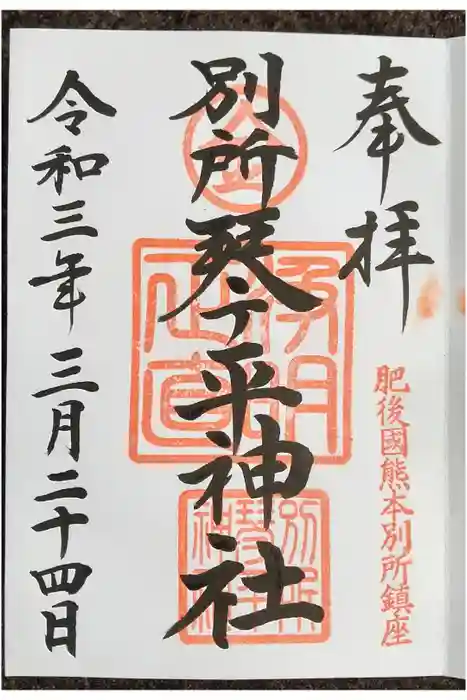 奉拝
肥後國熊本別所鎮座
別所琴平神社
令和三年三月二十四日